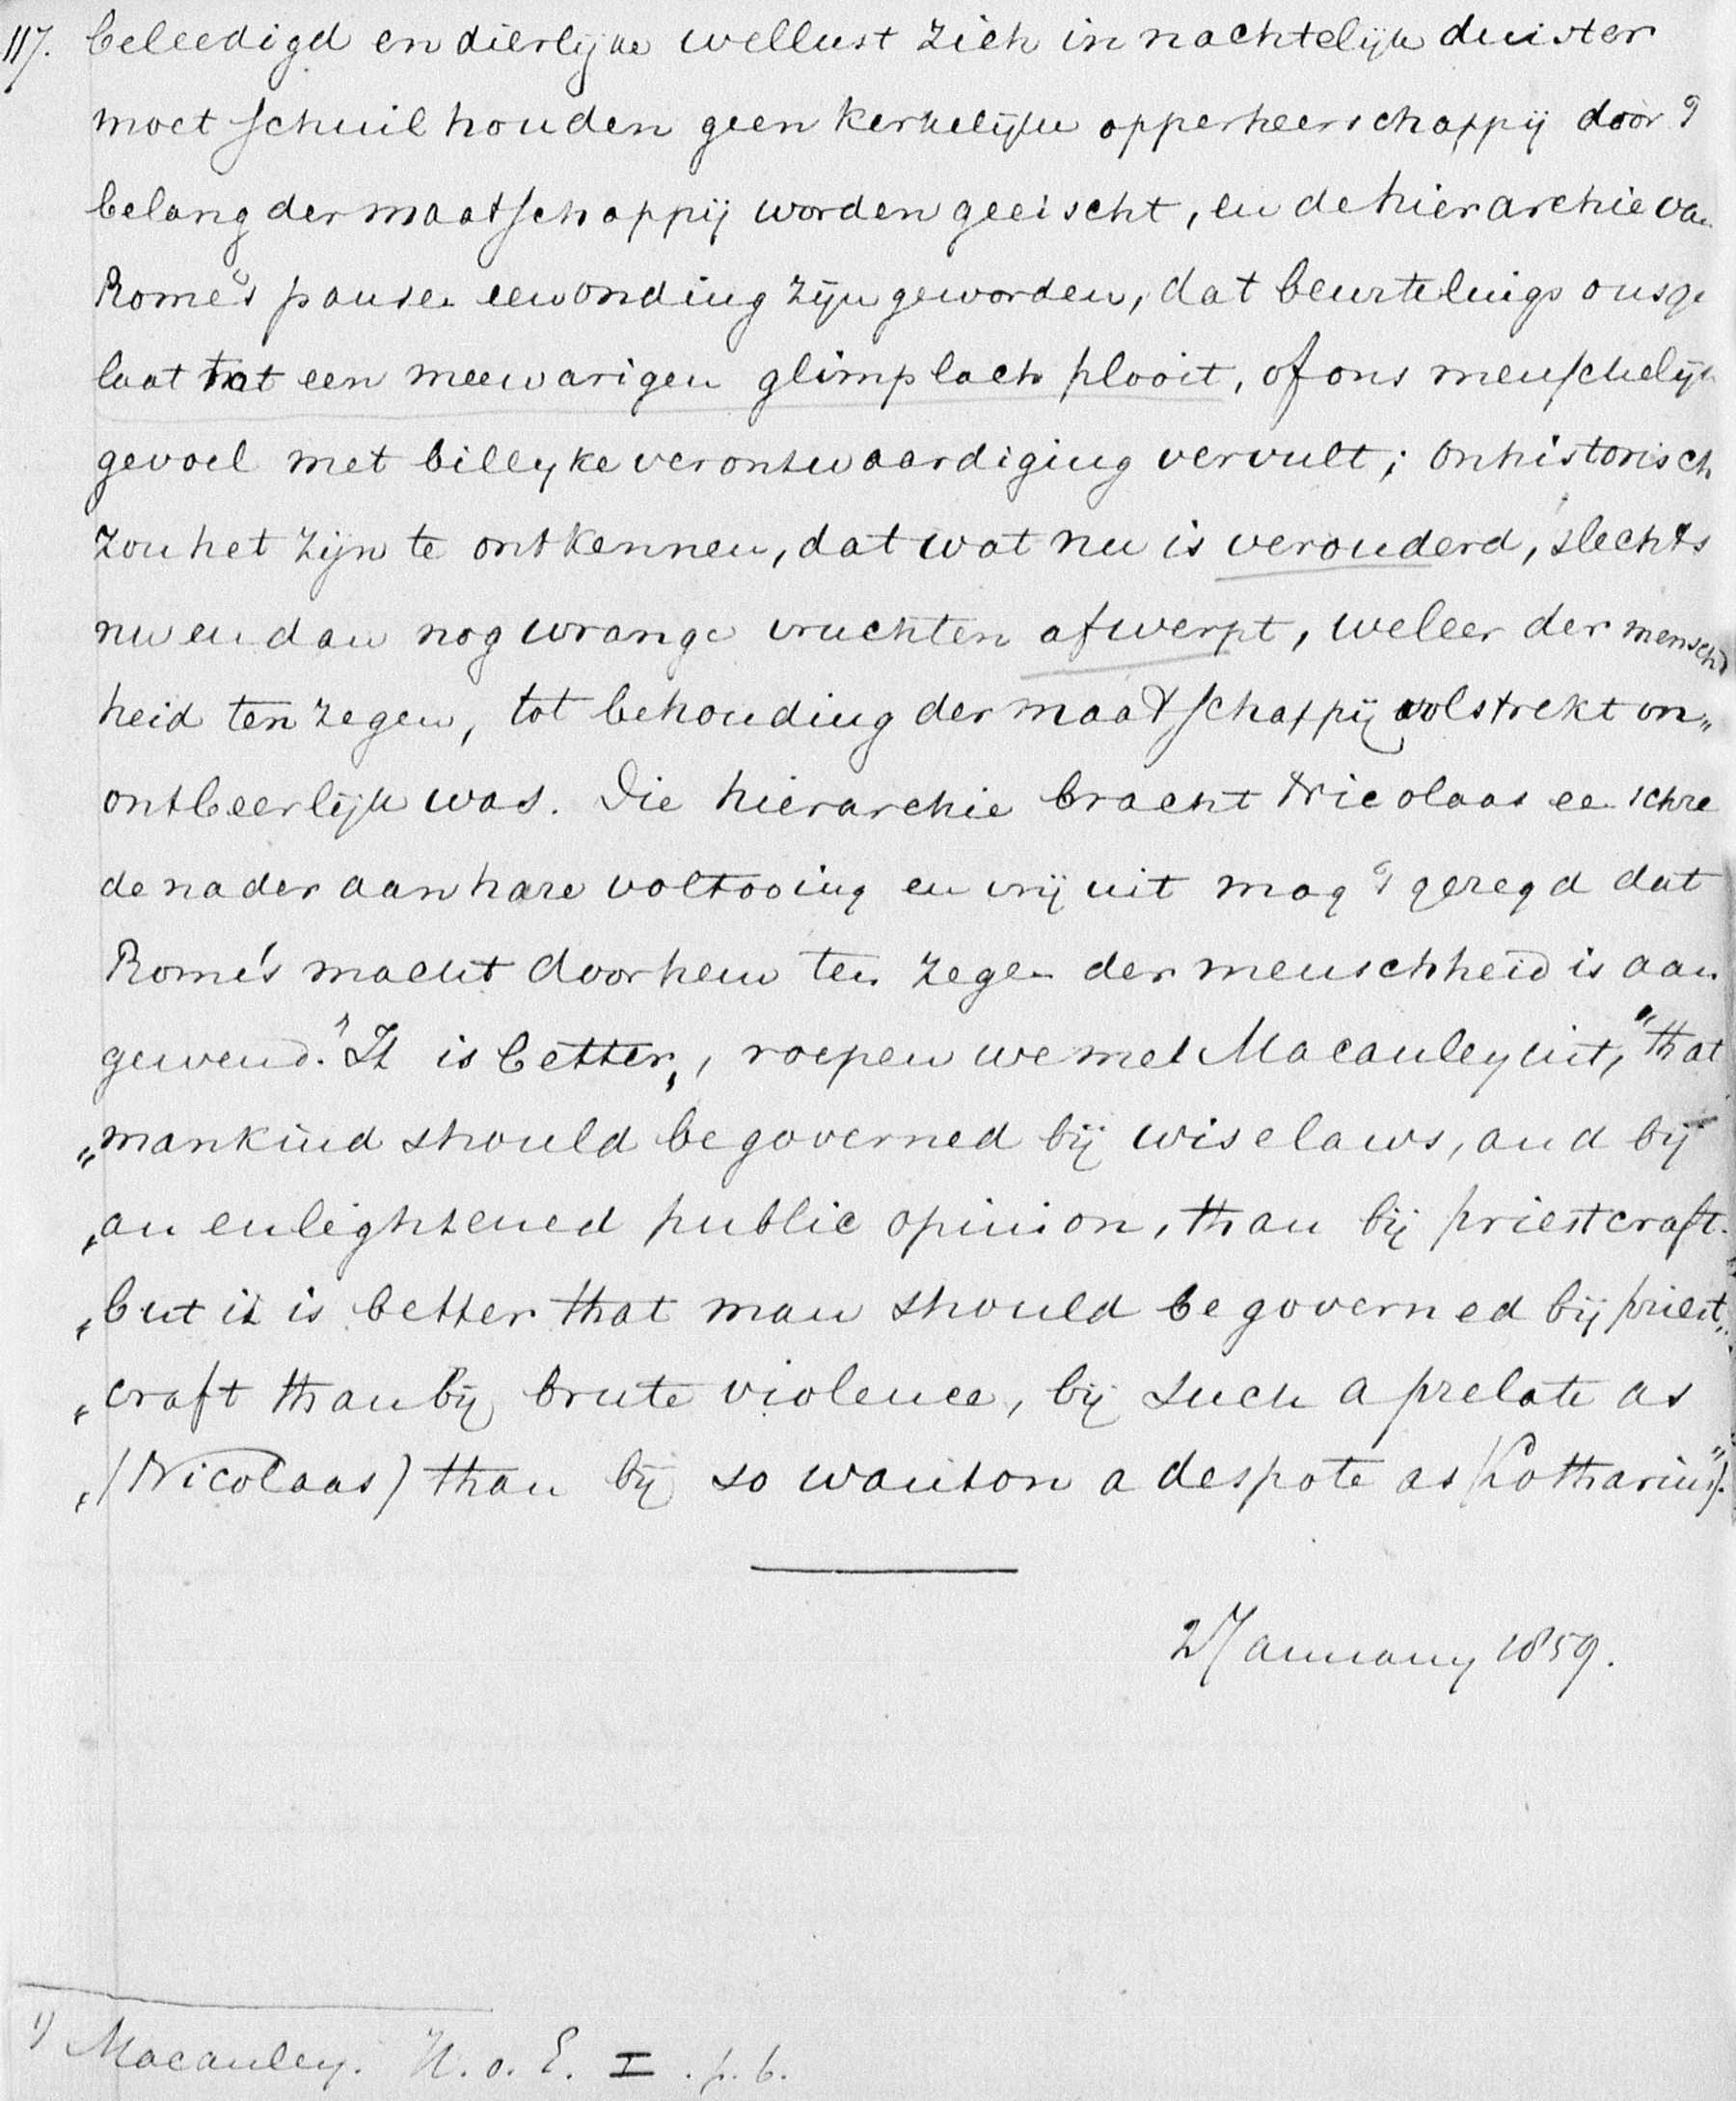 117. beleedigd en dierlijke wellust zich in nachtelijk duister
moet schuil houden geen kerkelijke opperheerschappij door 't
belang der maatschappij worden geeischt, en de hierarchie van
Rome's pausen een onding zijn geworden, dat beurtelings ons ge
laat tot een meewarigen glimplach plooit, of ons menschelijk
gevoel met billijke verontwaardiging vervult; onhistorisch
zou het zijn te ontkennen, dat wat nu is verouderd, slechts
nu en dan nog wrange vruchten afwerpt, weleer der mensch
heid ten zegen, tot behouding der maatschappij volstrekt on„
ontbeerlijk was. Die hierarchie bracht Nicolaas een schre
de nader aan hare voltooing en vrij uit mag 't gezegd dat
Rome's macht door hem ten zegen der menschheid is aan
gewend. "It is better„, roepen we met Macauley uit, "that
„mankind should be governed bij wise laws, and bij
„an enlightened public opinion, than bij priestcraft.
„but it is better that man should be governed bij priest„
„craft than bij brute violence, bij such a prelate as
„(Nicolaas) than bij so wanton a despote as (Lotharius").
2 January 1859.
1) Macauley. H. o. E. I. p. 6.